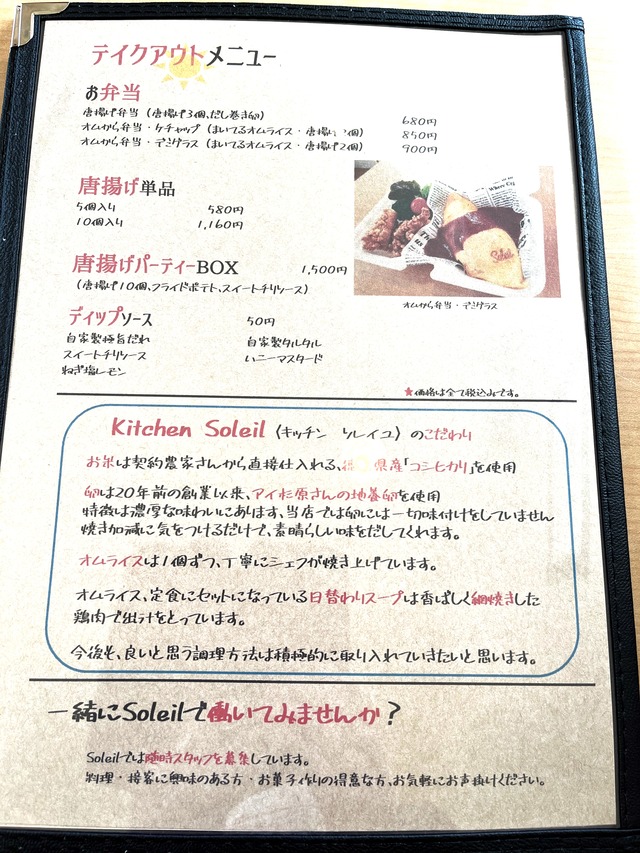 テイクアウトメニュー
お弁当
唐揚げ弁当（唐揚げ3個、だし巻き卵） 680円
オムから弁当・ケチャップ（まいてるオムライス・唐揚げ 個） 850円
オムから弁当・デミグラス（まいてるオムライス・唐揚げ2個） 900円
唐揚げ単品
5個入り 580円
10個入り 1,160円
唐揚げパーティーBOX 1,500円
（唐揚げ10個、フライドポテト、スイートチリソース）
オムから弁当・デミグラス
ディップソース 50円
自家製極旨だれ 自家製タルタル
スイートチリソース ハニーマスタード
ねぎ塩レモン
★価格は全て税込みです。
Kitchen Soleil（キッチン ソレイユ）のこだわり
お米は契約農家さんから直接仕入れる、 県産「コシヒカリ」を使用
卵は20年前の創業以来、アイ杉原さんの地養卵を使用
特徴は濃厚な味わいにあります、当店では卵には一切味付けをしていません
焼き加減に気をつけるだけで、素晴らしい味をだしてくれます。
オムライスは1個ずつ、丁寧にシェフが焼き上げています。
オムライス、定食にセットになっている日替わりスープは香ばしく網焼きした
鶏肉で出汁をとっています。
今後も、良いと思う調理方法は積極的に取り入れていきたいと思います。
一緒にSoleilで働いてみませんか？
Soleilでは随時スタッフを募集しています。
料理・接客に興味のある方・お菓子作りの得意な方、お気軽にお声掛けください。